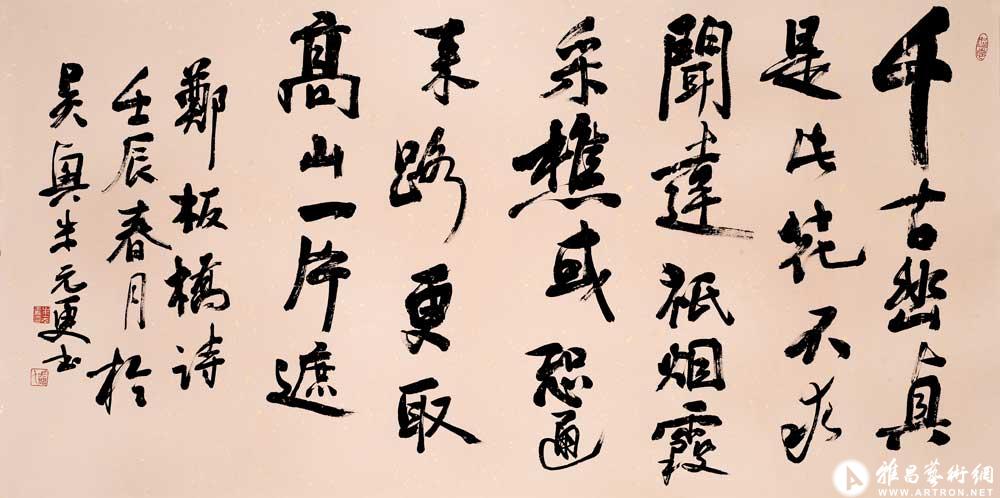 千古幽貞
是此花不求
聞達祇烟霞
采樵或恐通
来路更取
高山一片遮
鄭板橋詩
壬辰春月於
吴興朱元更书
雅昌藝術網
WWW.ARTRON.NET